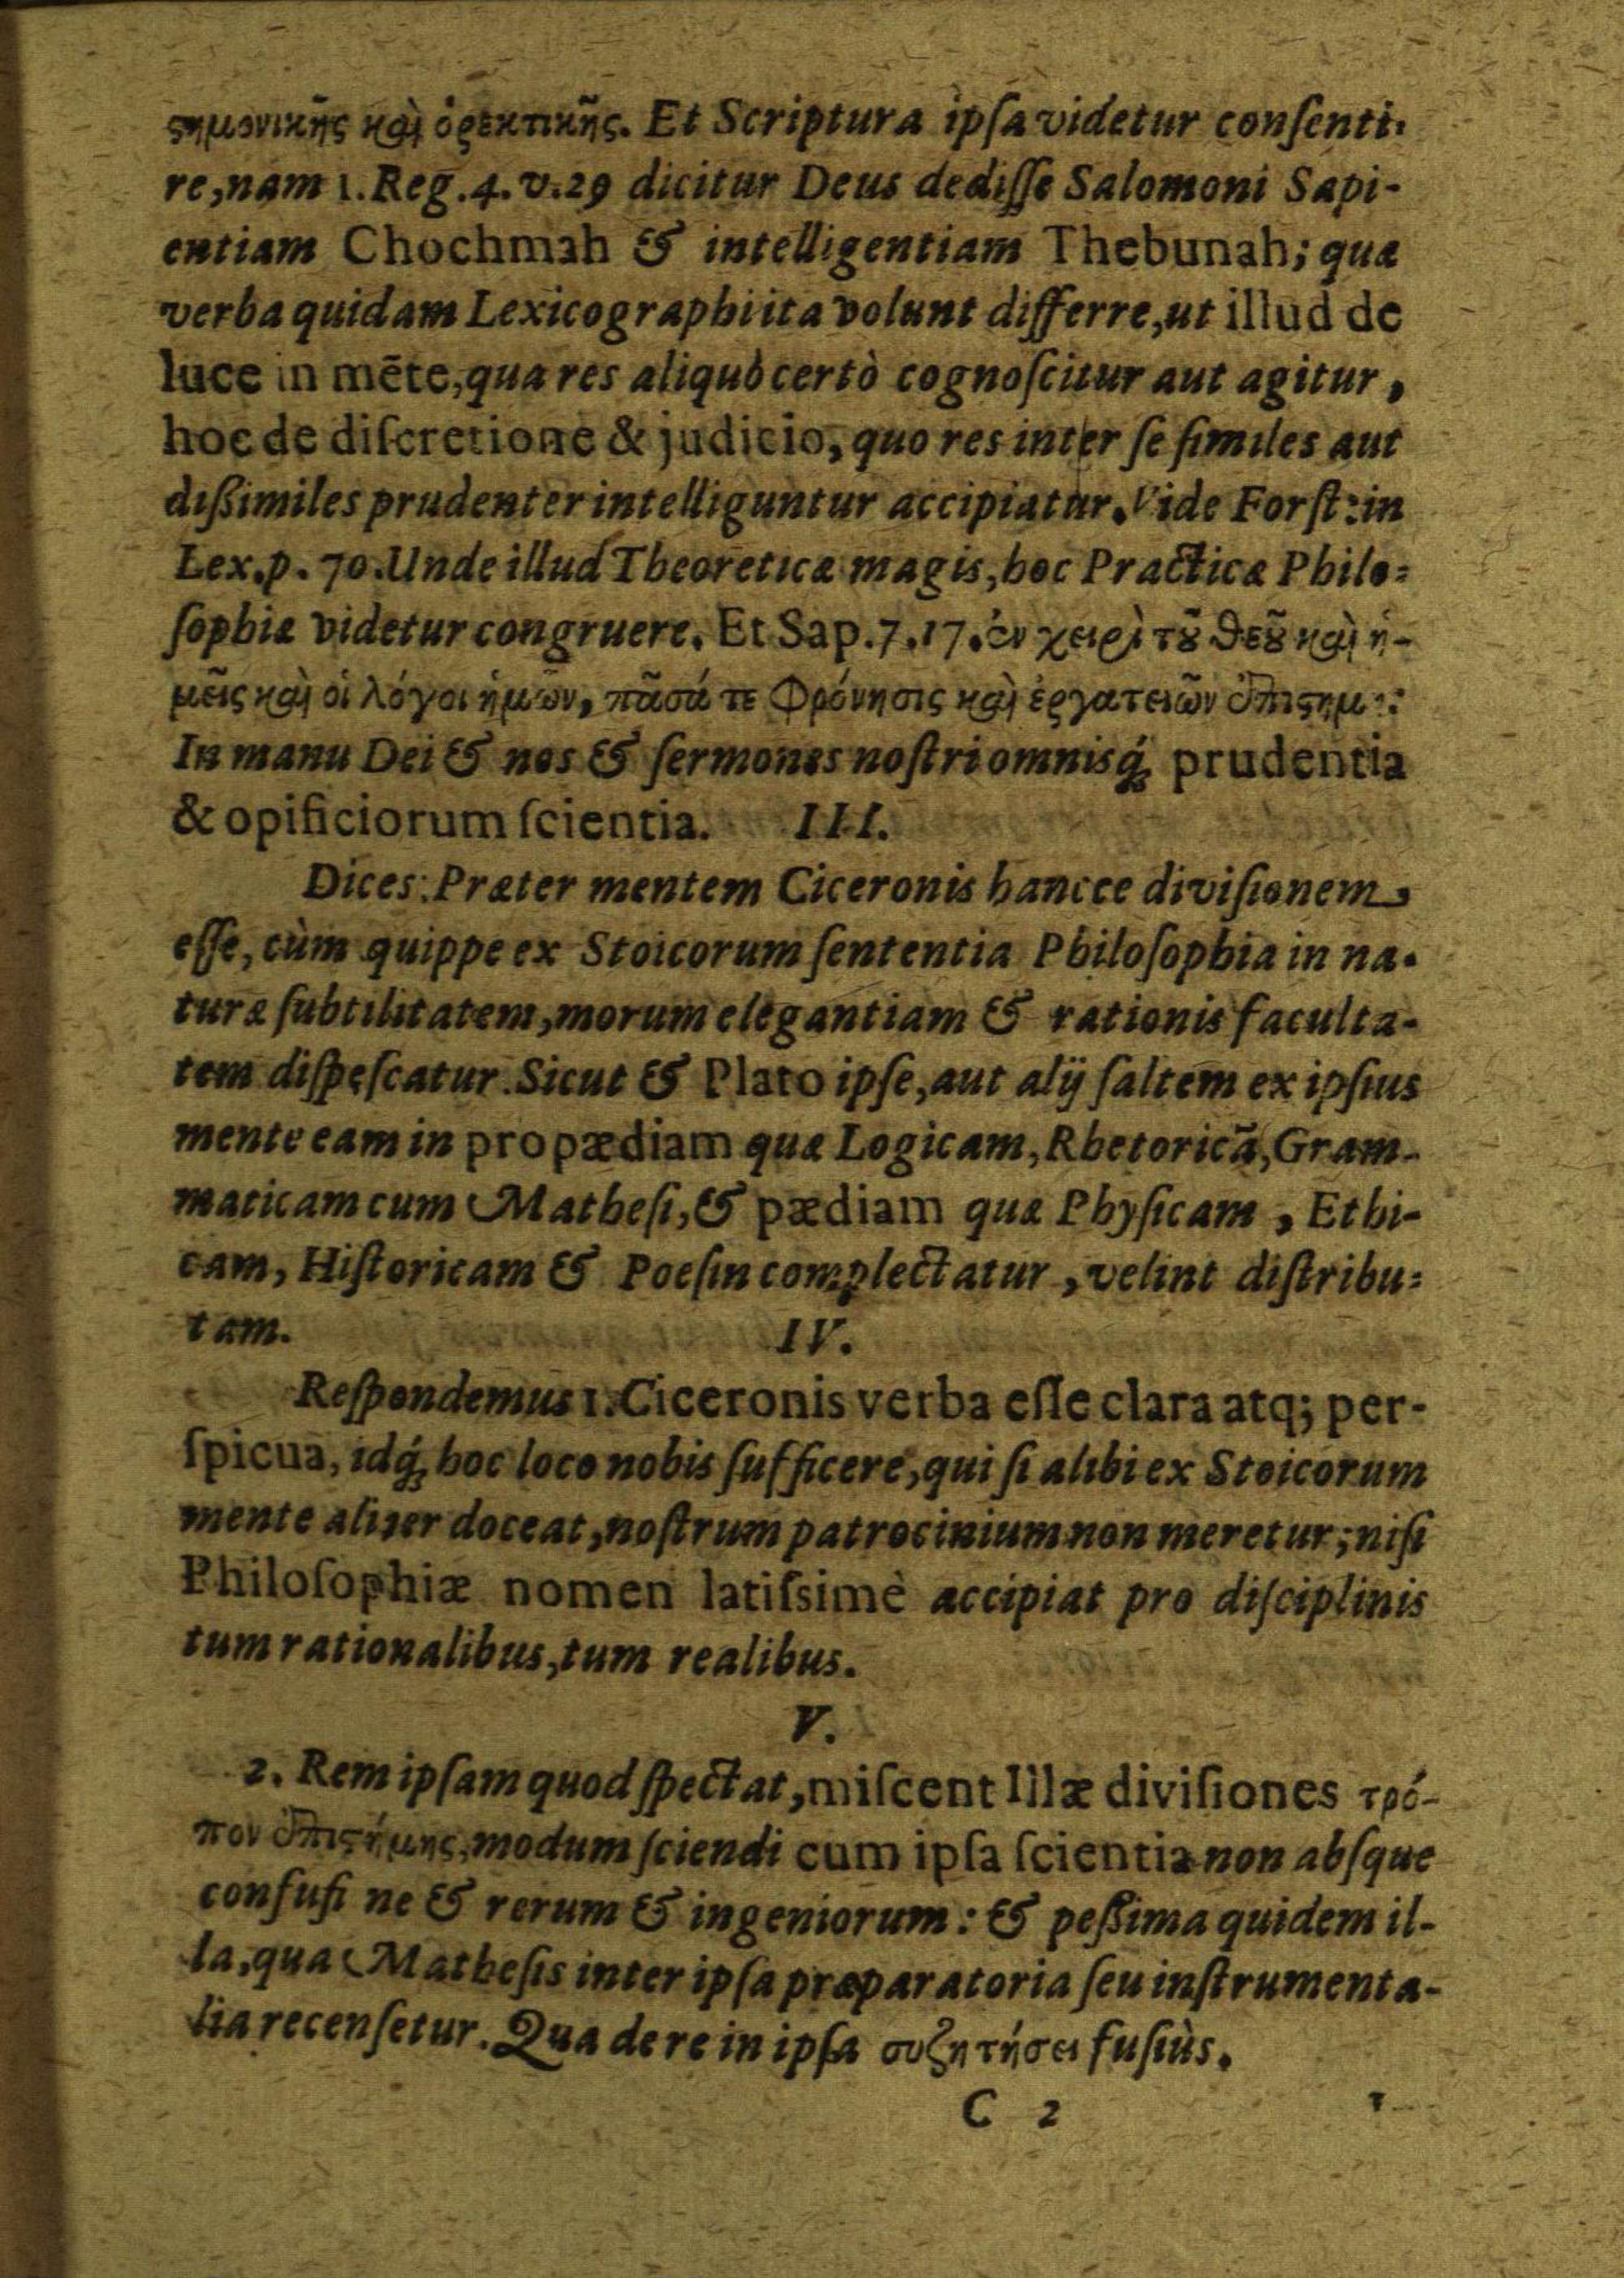 ϛημονικῆς καὶ ὀρεκτικῆς. Et Scriptura ipſa videtur conſenti-
re, nam 1. Reg. 4. v. 29 dicitur Deus dediſſe Salomoni Sapi-
entiam Chochmah & intelligentiam Thebunah; quæ
verba quidam Lexicographi ita volunt differre, ut illud de
luce in mēte, qua res aliqua certò cognoſcitur aut agitur,
hoc de diſcretione & judicio, quo res inter ſe ſimiles aut
dißimiles prudenter intelliguntur accipiatur. Vide Forſt: in
Lex. p. 70. Unde illud Theoreticæ magis, hoc Practicæ Philo=
ſophiæ videtur congruere. Et Sap. 7. 17. ἐν χειρὶ τȣ͂ θεȣ͂ καὶ ἡ-
μεῖς καὶ οἱ λόγοι ἡμῶν, πᾶσά τε φρόνησις καὶ ἐργατειῶν ἐπιϛημ:
In manu Dei & nos & ſermones noſtri omnisq́; prudentia
& opificiorum ſcientia. III.
Dices: Præter mentem Ciceronis hancce diviſionem
eſſe, cùm quippe ex Stoicorum ſententia Philoſophia in na-
turæ ſubtilitatem, morum elegantiam & rationis faculta-
tem diſpeſcatur. Sicut & Plato ipſe, aut alij ſaltem ex ipſius
mente eam in propædiam quæ Logicam, Rhetoricā, Gram-
maticam cum Matheſi, & pædiam quæ Phyſicam, Ethi-
cam, Hiſtoricam & Poeſin complectatur, velint diſtribu=
tam. IV.
Reſpondemus 1. Ciceronis verba eſſe clara atq; per-
ſpicua, idq́; hoc loco nobis ſufficere, qui ſi alibi ex Stoicorum
mente aliter doceat, noſtrum patrocinium non meretur; niſi
Philoſophiæ nomen latiſsimè accipiat pro diſciplinis
tum rationalibus, tum realibus.
V.
2. Rem ipſam quod ſpectat, miſcent Illæ diviſiones τρό-
πον ἐπιϛήμης, modum ſciendi cum ipſa ſcientia non abſque
confuſi ne & rerum & ingeniorum: & peßima quidem il-
la, qua Matheſis inter ipſa præparatoria ſeu inſtrumenta-
lia recenſetur. Qua de re in ipſa συζητήσει fuſiùs.
C 2